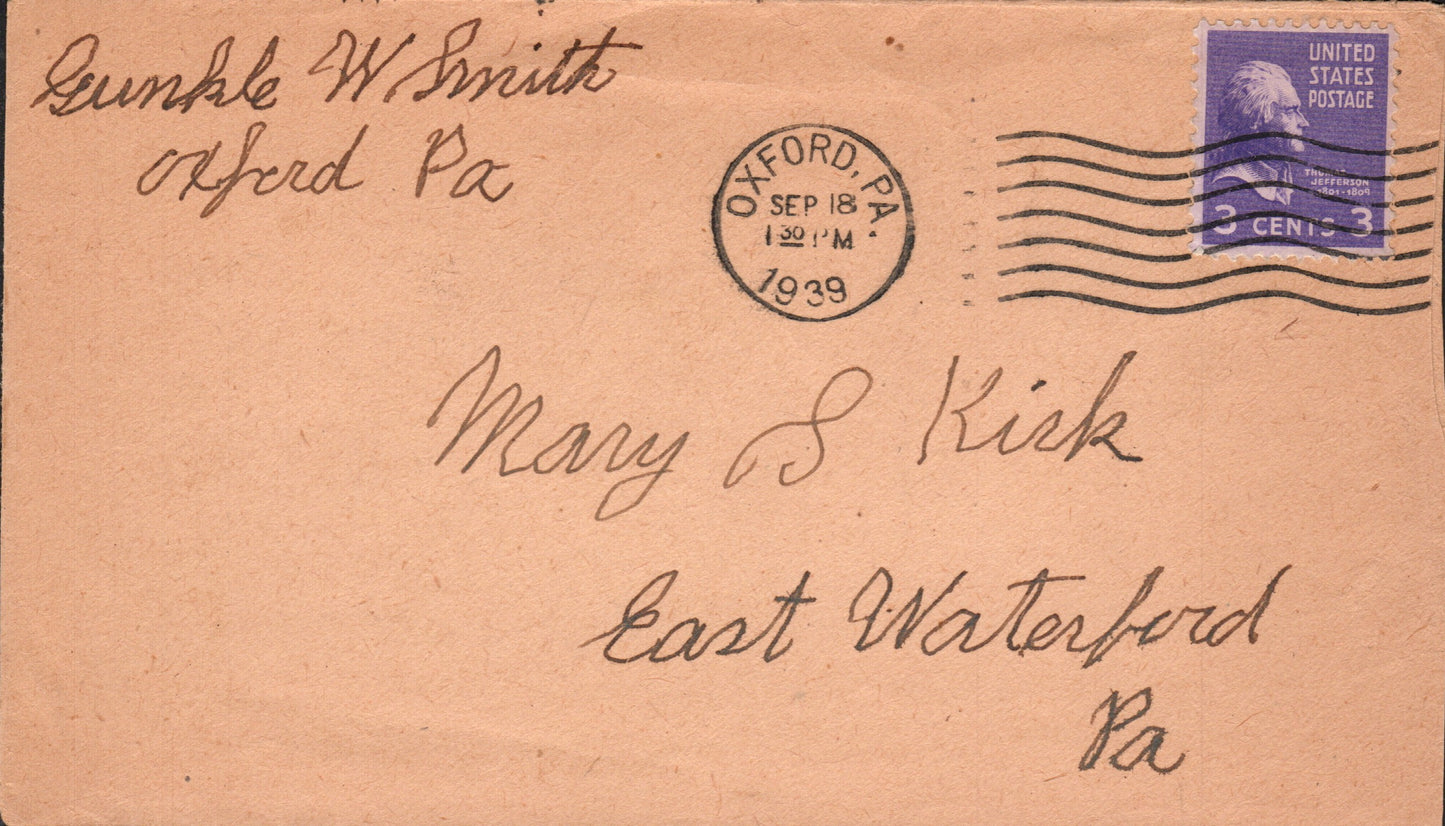 Gunkle W Smith
Oxford Pa
OXFORD, PA.
SEP 18
1 30 PM
1939
UNITED
STATES
POSTAGE
THOMAS
JEFFERSON
1801-1809
3 CENTS 3
Mary S Kirk
East Waterford
Pa